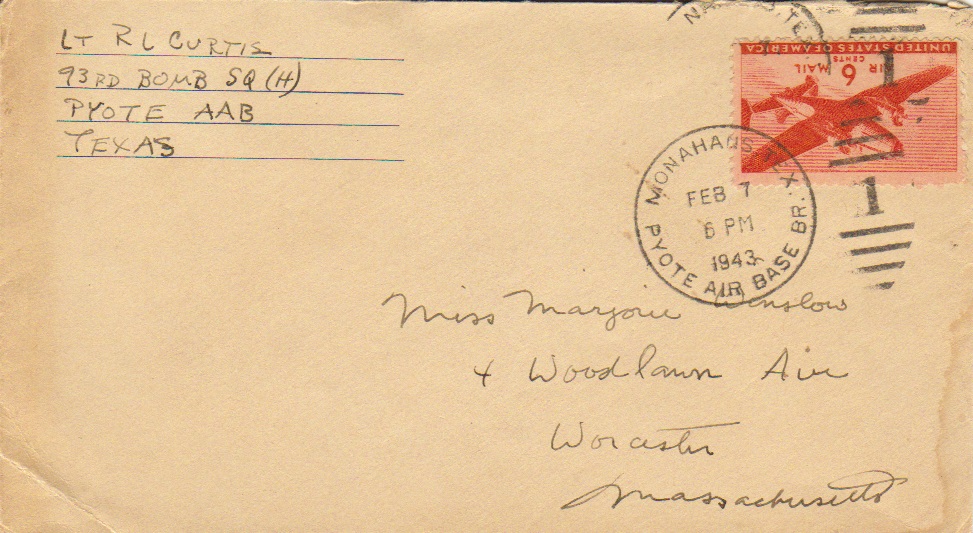 LT R L CURTIS
93RD BOMB SQ (H)
PYOTE AAB
TEXAS
UNITED STATES OF AMERICA
CENTS
AIR 6 MAIL
MONAHANS, TEX.
FEB 7
6 PM
1943
PYOTE AIR BASE BR.
1
1
Miss Marjorie Winslow
4 Woodlawn Ave
Worcester
Massachusetts